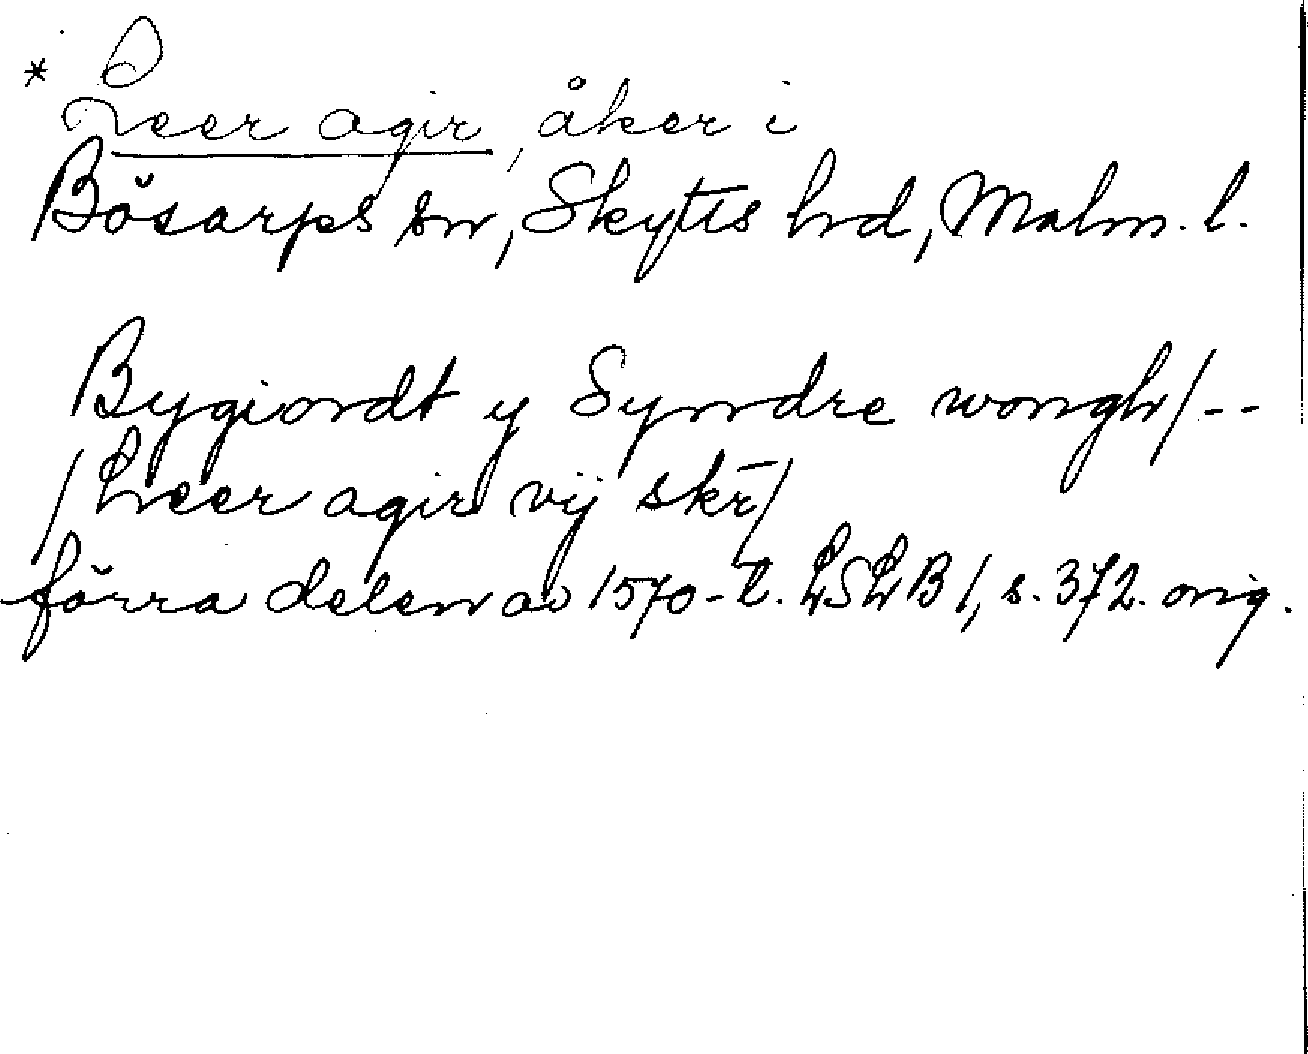 * Leer agir, åker i
Bösarps sn, Skytts hrd, Malm. l.
Bygiordt y Syndre wongh/--
/Leer agir vij skr̄/
förra delen av 1570-t. LSLB 1, s. 372. orig.